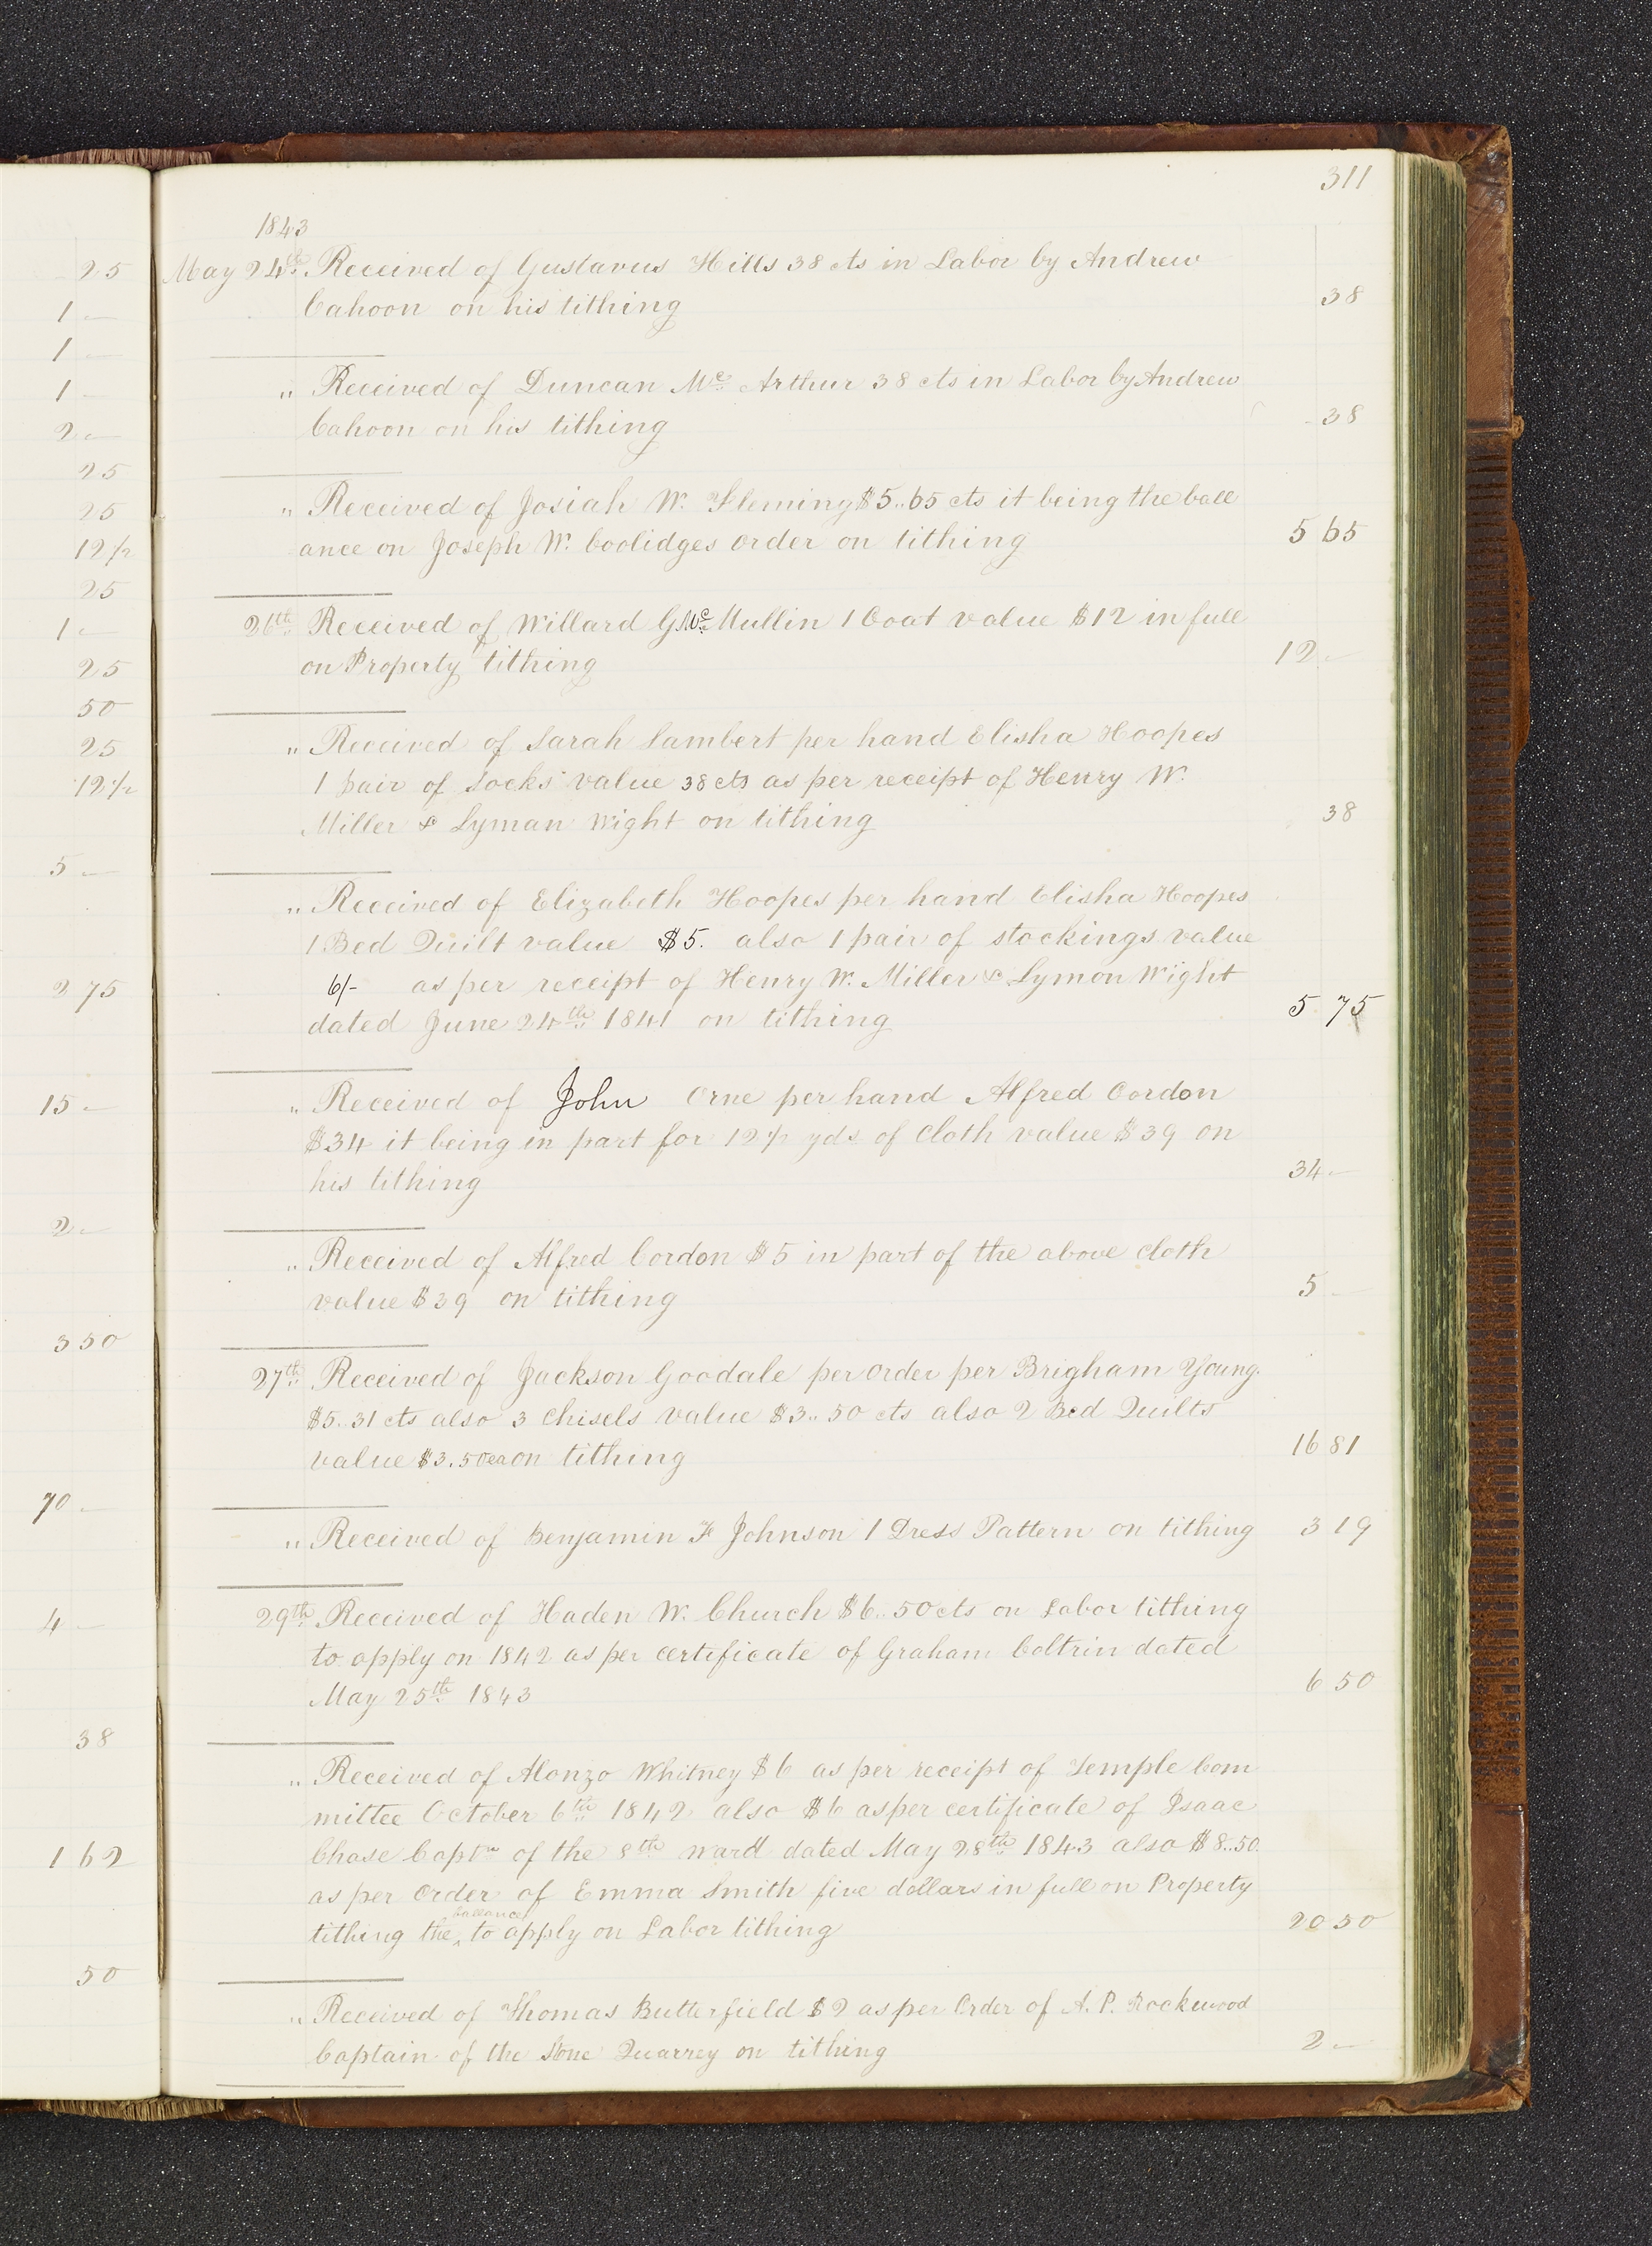 311
1843
25 May 24th Received of Gustavus Hills 38 cts in Labor by Andrew
1 — Cahoon on his tithing 38
1 —
1 — " Received of Duncan Mc Arthur 38 cts in Labor by Andrew
2 — Cahoon on his tithing 38
25
25 " Received of Josiah W. Fleming $5..65 cts it being the ball
12 1/2 ance on Joseph W. Coolidges order on tithing 5 65
25
1 — 26th Received of Willard G Mc Mullin 1 Coat value $12 in full
25 on Property tithing 12 —
50
25 " Received of Sarah Lambert per hand Elisha Hoopes
12 1/2 1 pair of socks value 38 cts as per receipt of Henry W.
Miller & Lyman Wight on tithing 38
5 —
" Received of Elizabeth Hoopes per hand Elisha Hoopes
1 Bed Quilt value $5. also 1 pair of stockings value
2 75 6/- as per receipt of Henry W. Miller & Lymon Wight
dated June 24th 1841 on tithing 5 75
15 — " Received of John Orne per hand Alfred Cordon
$34 it being in part for 12 1/2 yds of Cloth value $39 on
his tithing 34 —
2 —
" Received of Alfred Cordon $5 in part of the above cloth
value $39 on tithing 5 —
3 50
27th Received of Jackson Goodale per order per Brigham Young.
$5..31 cts also 3 Chisels value $3..50 cts also 2 Bed Quilts
value $3.50 ea on tithing 16 81
70 —
" Received of Benjamin F Johnson 1 Dress Pattern on tithing 3 19
4 — 29th Received of Haden W. Church $6..50 cts on Labor tithing
to apply on 1842 as per certificate of Graham Coltrin dated
May 25th 1843 6 50
38
" Received of Alonzo Whitney $6 as per receipt of Temple Com
mittee October 6th 1842 also $6 as per certificate of Isaac
1 62 Chase Captn of the 8th ward dated May 28th 1843 also $8..50.
as per Order of Emma Smith five dollars in full on Property
ballance
tithing the ^ to apply on Labor tithing 20 50
50
" Received of Thomas Butterfield $2 as per Order of A. P. Rockwood
Captain of the Stone Quarrey on tithing 2 —